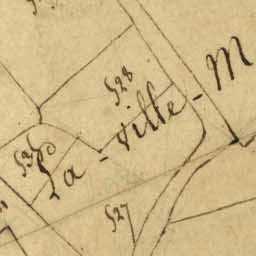 528
La-ville-M
527